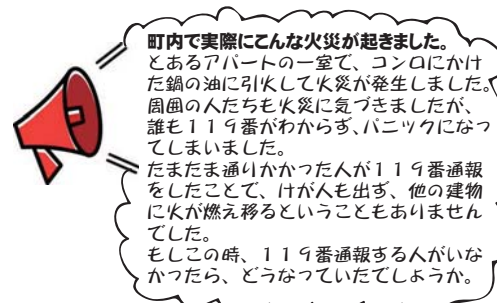 町内で実際にこんな火災が起きました。
とあるアパートの一室で、コンロにかけ
た鍋の油に引火して火災が発生しました。
周囲の人たちも火災に気づきましたが、
誰も119番がわからず、パニックになっ
てしまいました。
たまたま通りかかった人が119番通報
をしたことで、けが人も出ず、他の建物
に火が燃え移るということもありません
でした。
もしこの時、119番通報する人がいな
かったら、どうなっていたでしょうか。